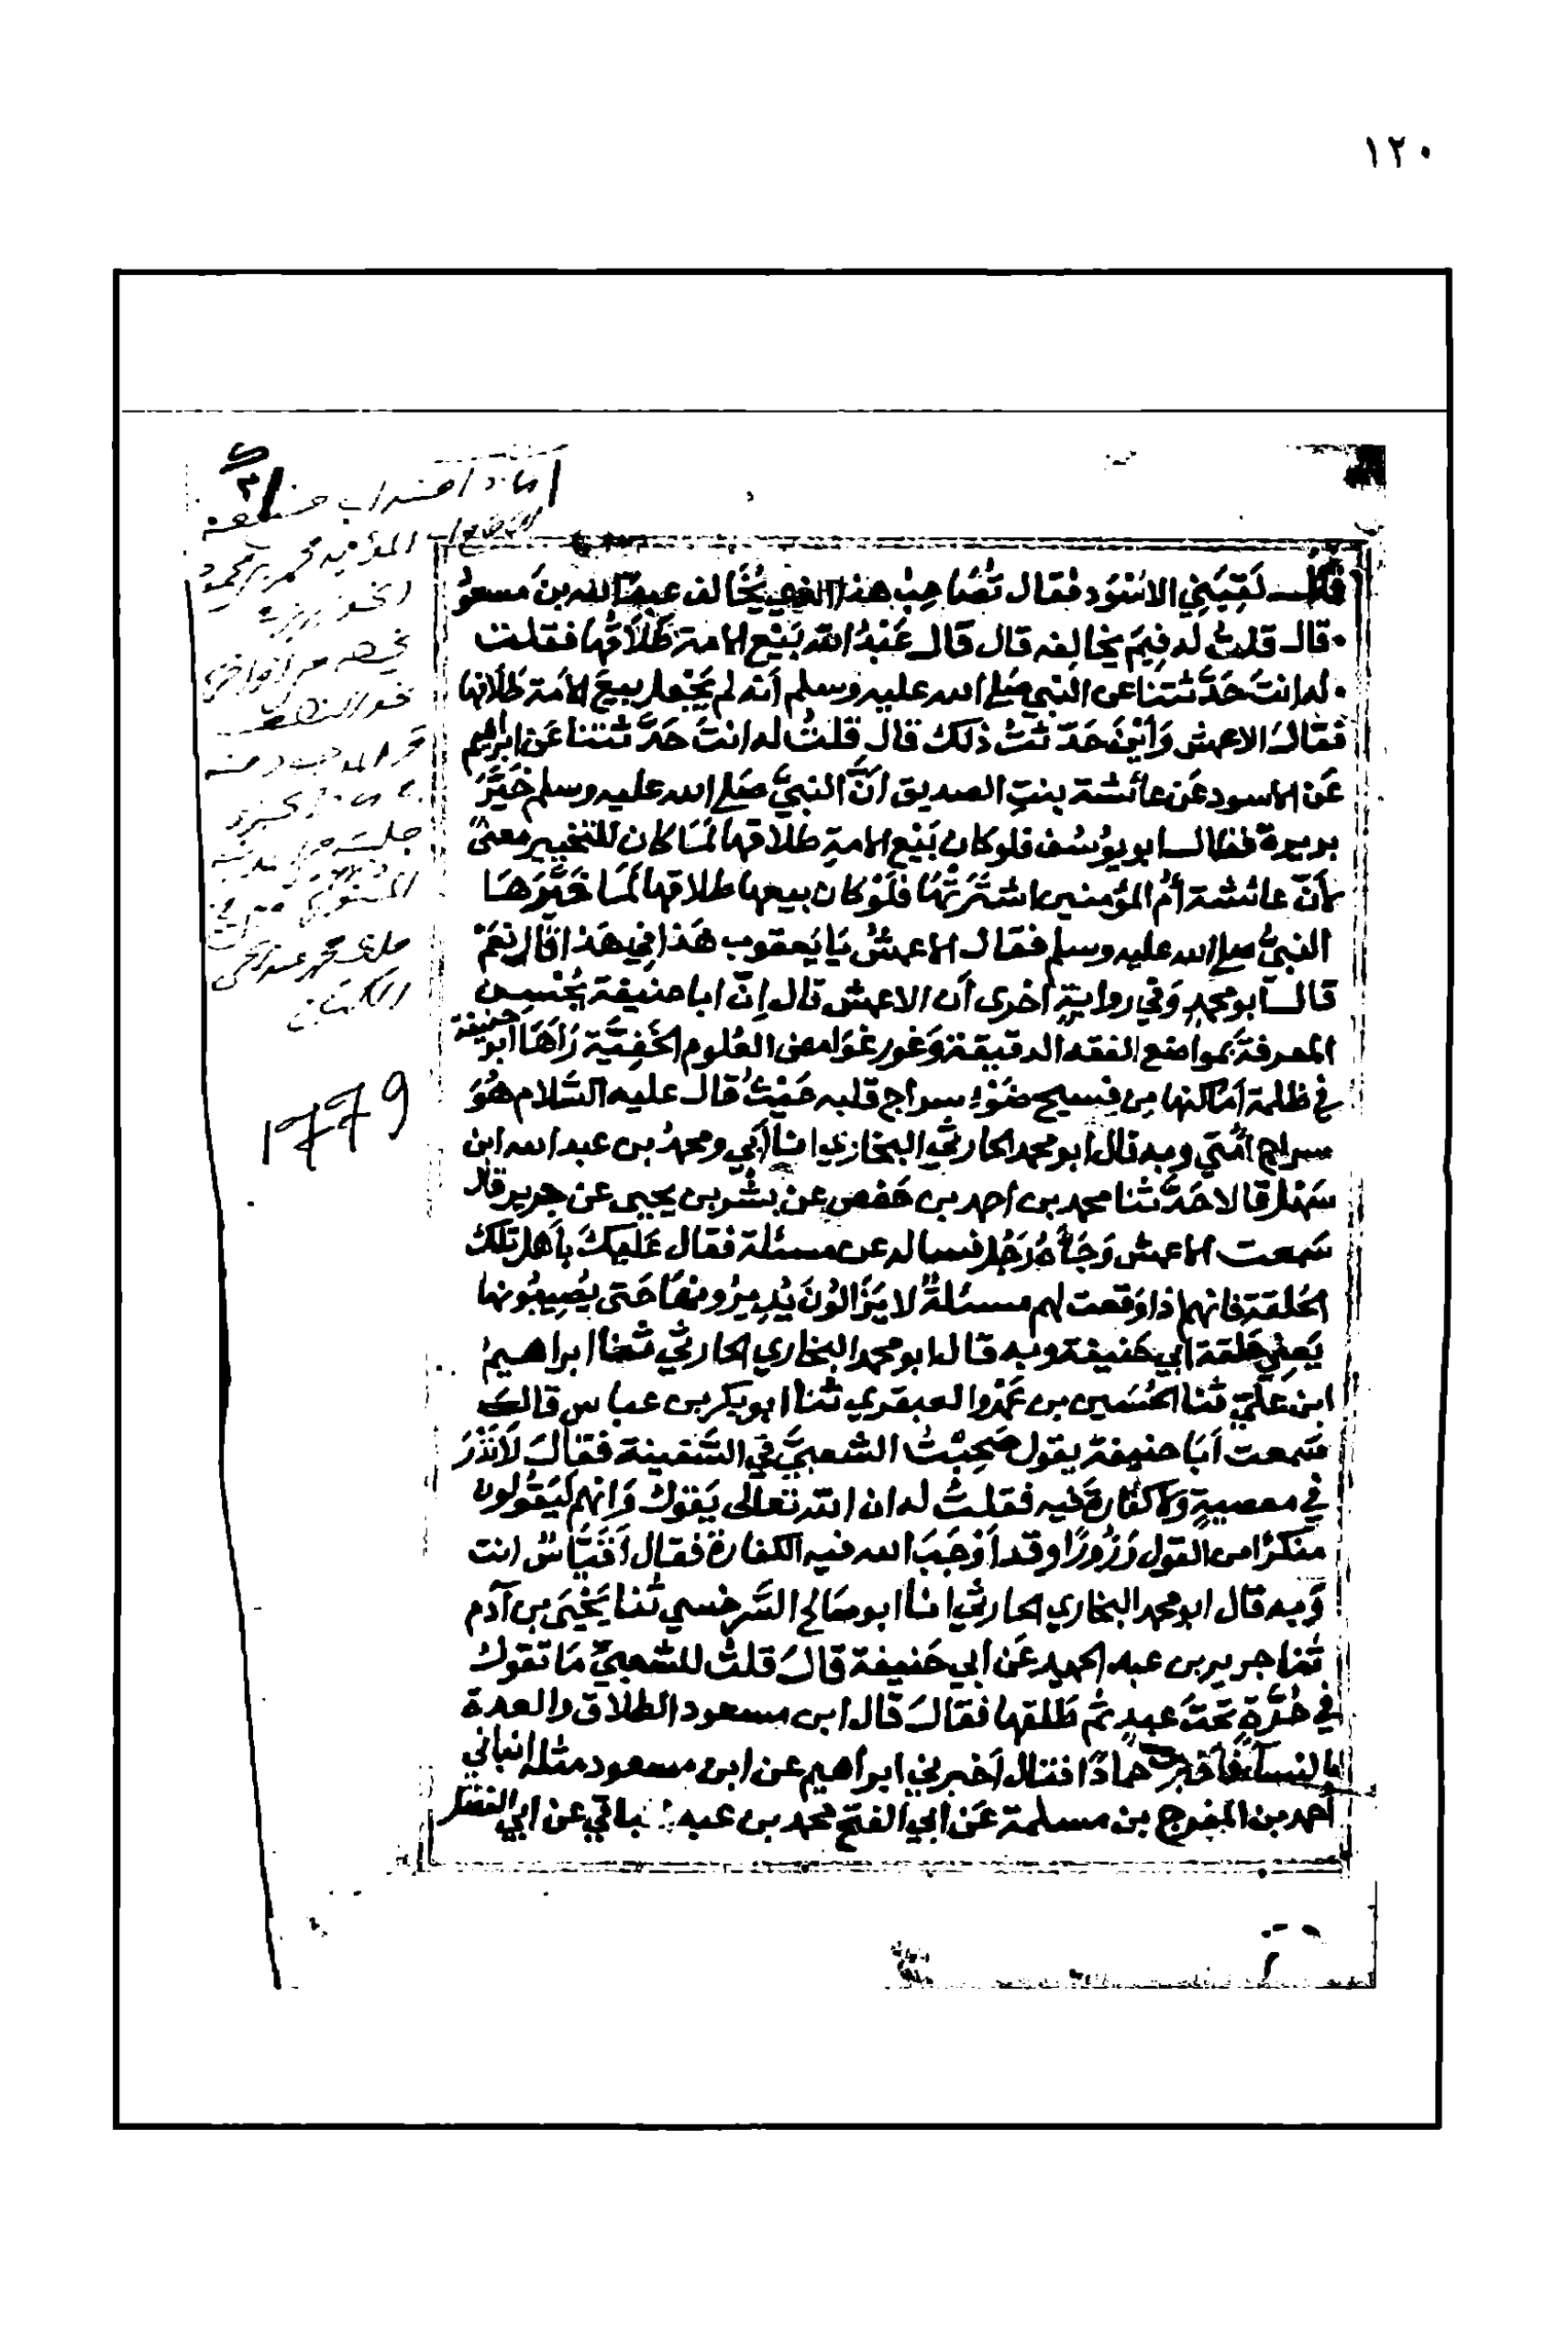 ١٢٠
قال لقيني الاسود فقال تُصَاحِبْ هذا الذي يُخَالف عبد الله بنَ مسعود
قال قلت له فيمَ يخالفه قال قال عَبْدُ الله بَيْع الامة طَلَاقُها فقلت
له انتَ حَدَّثتنا عن النبي صلى الله عليه وسلم أنه لم يَجْعل بيعَ الأمة طَلَاقها
فقالَ الاعمش وَأينَ حَدّثتُ ذلك قال قلتُ له انتَ حَدَّثتنا عَن ابراهيم
عَن الاسود عَن عائشة بنتِ الصديق أنَّ النبيَّ صَلى الله عليه وسلم خَيَّرَ
بريرة فقال ابو يوسُف فلو كان بَيْع الامةِ طلاقها لمَا كان للتخيير معنىً
لأنّ عائشة أمُّ المؤمنين اشتَرَتْهَا فلَوْ كان بيعها طلاقها لمَا خَيَّرَهَا
النبيُّ صلى الله عليه وسلم فقال الاعمشُ يَا يَعقوب هَذا في هَذا قَال نعَمْ
قال أبو محمدٍ وَفي روايةٍ أخرى أن الاعمش قال إنّ ابا حنيفة يُحْسِن
المعرفةَ بمواضع الفقه الدقيقة وَغور غوَامض العُلوم الخَفِيَّة رَآهَا أبو حنيفة
في ظلمة أمَاكنها مِن فسيح ضَوْءِ سراج قلبه حَيْثُ قال عليه السَّلام هُوَ
سراج أمّتي وبه قال أبو محمد الحارثي البخاري انبأ أبي ومحمدُ بن عبد الله ابن
سَهْل قالا حَدَّثنا محمد بن أحمد بن حَفص عن بشر بن يحيى عن جرير قال
سَمعت الاعمش وَجَاءَهُ رَجُل فسأله عن مسئلة فقال عَليكَ بأهل تلك
الحَلقة فانهم إذا وَقعت لهم مسئلةٌ لا يَزَالُونَ يُدِيرُونهَا حَتى يُصِيبُونها
يَعني حَلقة أبي حَنيفة وبه قال ابو محمد البخاري الحارثي ثنا ابراهيمُ
ابن علي ثنا الحُسَين بن عَمْرو العبقري ثنا ابو بكر بن عياش قال
سَمعت أبَا حنيفة يقول صَحِبْتُ الشعبيَّ في السَّفينة فقالَ لَا نَذْرَ
في معصيةٍ وَلا كفارة فيه فقلتُ له ان الله تعالى يَقولُ وَانهم لَيَقُولون
منكرًا من القول وَزُورًا وقد أوْجَبَ الله فيه الكفارة فقال أقَيَّاسٌ انت
وَبه قال ابو محمد البخاري الحارثي انبأ ابو صالح السَّرخسي ثنا يَحْيَى بن آدم
ثنا جرير بن عبد الحميد عَن أبي حَنيفة قالَ قلتُ للشعبيِّ مَا تقولُ
في حُرَّةٍ تحتَ عبدٍ ثم طَلقها فقالَ قال ابن مسعود الطلاق والعدة
بالنسآء فأخبرت حمادًا فقال أخبرني ابراهيم عن ابن مسعود مثله انباني
أحمد بن المفرج بن مسلمة عَن أبي الفتح محمد بن عبد الباقي عن ابي الفضل
١٧٧٩